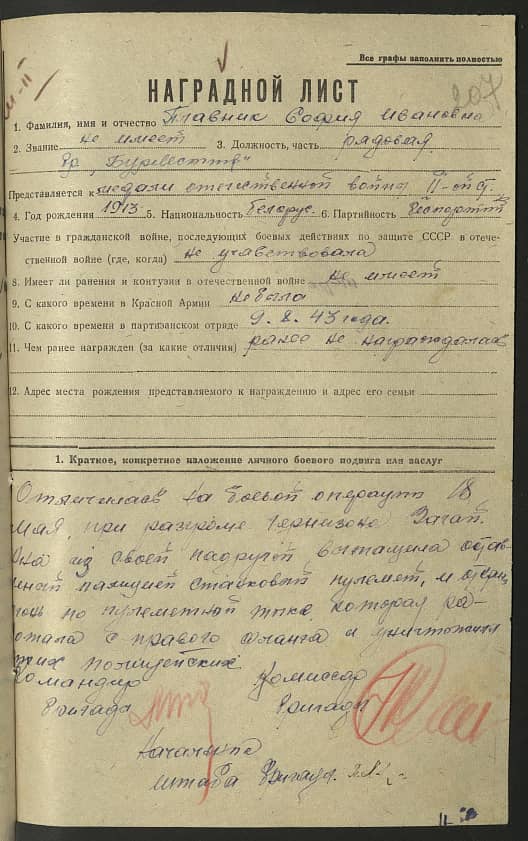 Все графы заполнить полностью
207
НАГРАДНОЙ ЛИСТ
1. Фамилия, имя и отчество Плавник София Ивановна
2. Звание не имеет 3. Должность, часть рядовая
бр. „Буревестник“
Представляется к медали отечественной война II-ой ст.
4. Год рождения 1913 5. Национальность белорус. 6. Партийность беспартий
Участие в гражданской войне, последующих боевых действиях по защите СССР в отече-
ственной войне (где, когда) не участвовала
8. Имеет ли ранения и контузии в отечественной войне не имеет
9. С какого времени в Красной Армии не была
10. С какого времени в партизанском отряде 9.8.43 года.
11. Чем ранее награжден (за какие отличия) ранее не награждалась
12. Адрес места рождения представляемого к награждению и адрес его семьи
1. Краткое, конкретное изложение личного боевого подвига или заслуг
Отличилась на боевой операции 18
мая, при разгроме гарнизона
Она из своей подругой вытащила остав-
полицией станковый пулемет, и
огонь по пулеметной точке, которая ра-
ботала с правого фланга и уничтожила
полицейских
Командир Комиссар
бригады бригады
Начальник
штаба бригады